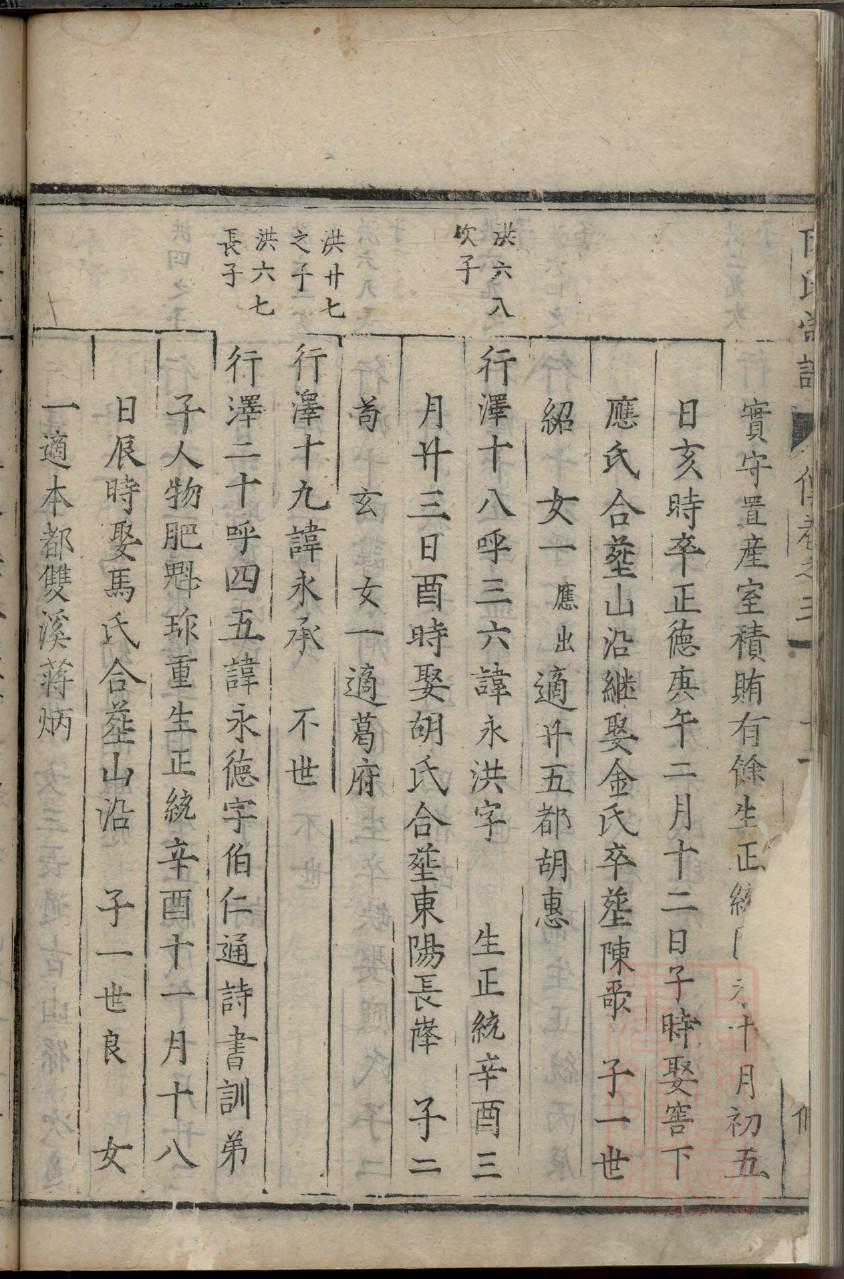 實守置産室積賄有餘生正統 十月初五
日亥時卒正德庚午二月十二日子時娶窖下
應氏合塟山沿継娶金氏卒塟陳 子一世
紹 女一應出適廿五都胡惠
洪六八
次子
行澤十八呼三六諱永洪字 生正統辛酉三
月廿三日酉時娶胡氏合塟東陽長 子二
玄 女一適葛府
洪廿七
之子
行澤十九諱永承 不世
洪六七
長子
行澤二十呼四五諱永德字伯仁通詩書訓弟
子人物肥魁珎重生正統辛酉十一月十八
日辰時娶馬氏合塟山沿 子一世良 女
一適本都雙溪蒋炳